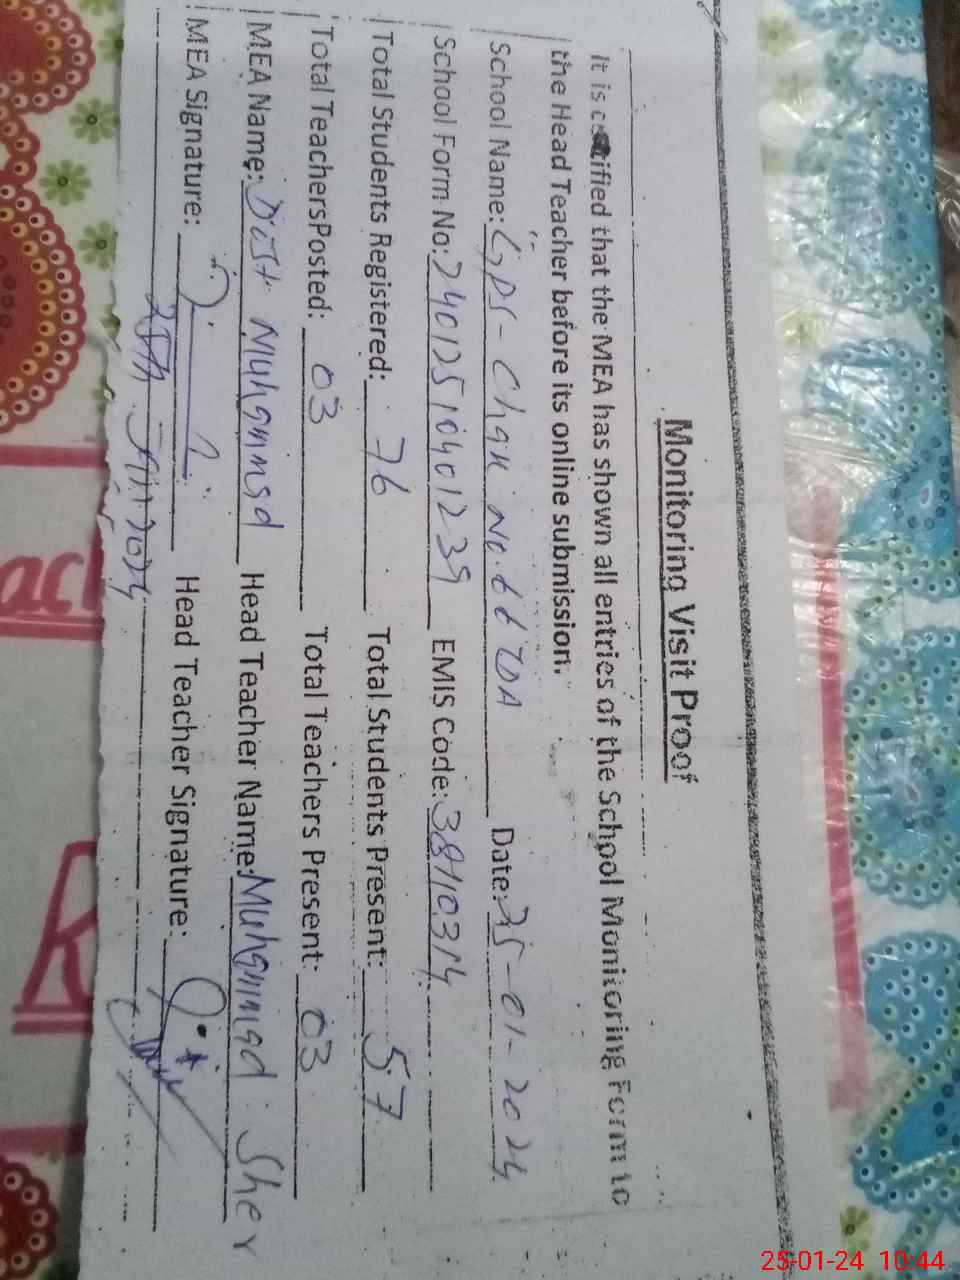 Monitoring Visit Proof
It is certified that the MEA has shown all entries of the School Monitoring Form to
the Head Teacher before its online submission.
School Name: GPS - Chak No. 66 TDA Date: 25-01-2024
School Form No: 24012510401239 EMIS Code: 38410314
Total Students Registered: 76 Total Students Present: 57
Total Teachers Posted: 03 Total Teachers Present: 03
MEA Name: Dost Muhammad Head Teacher Name: Muhammad Sher
MEA Signature: Head Teacher Signature:
ach
R
25-01-24 10:44